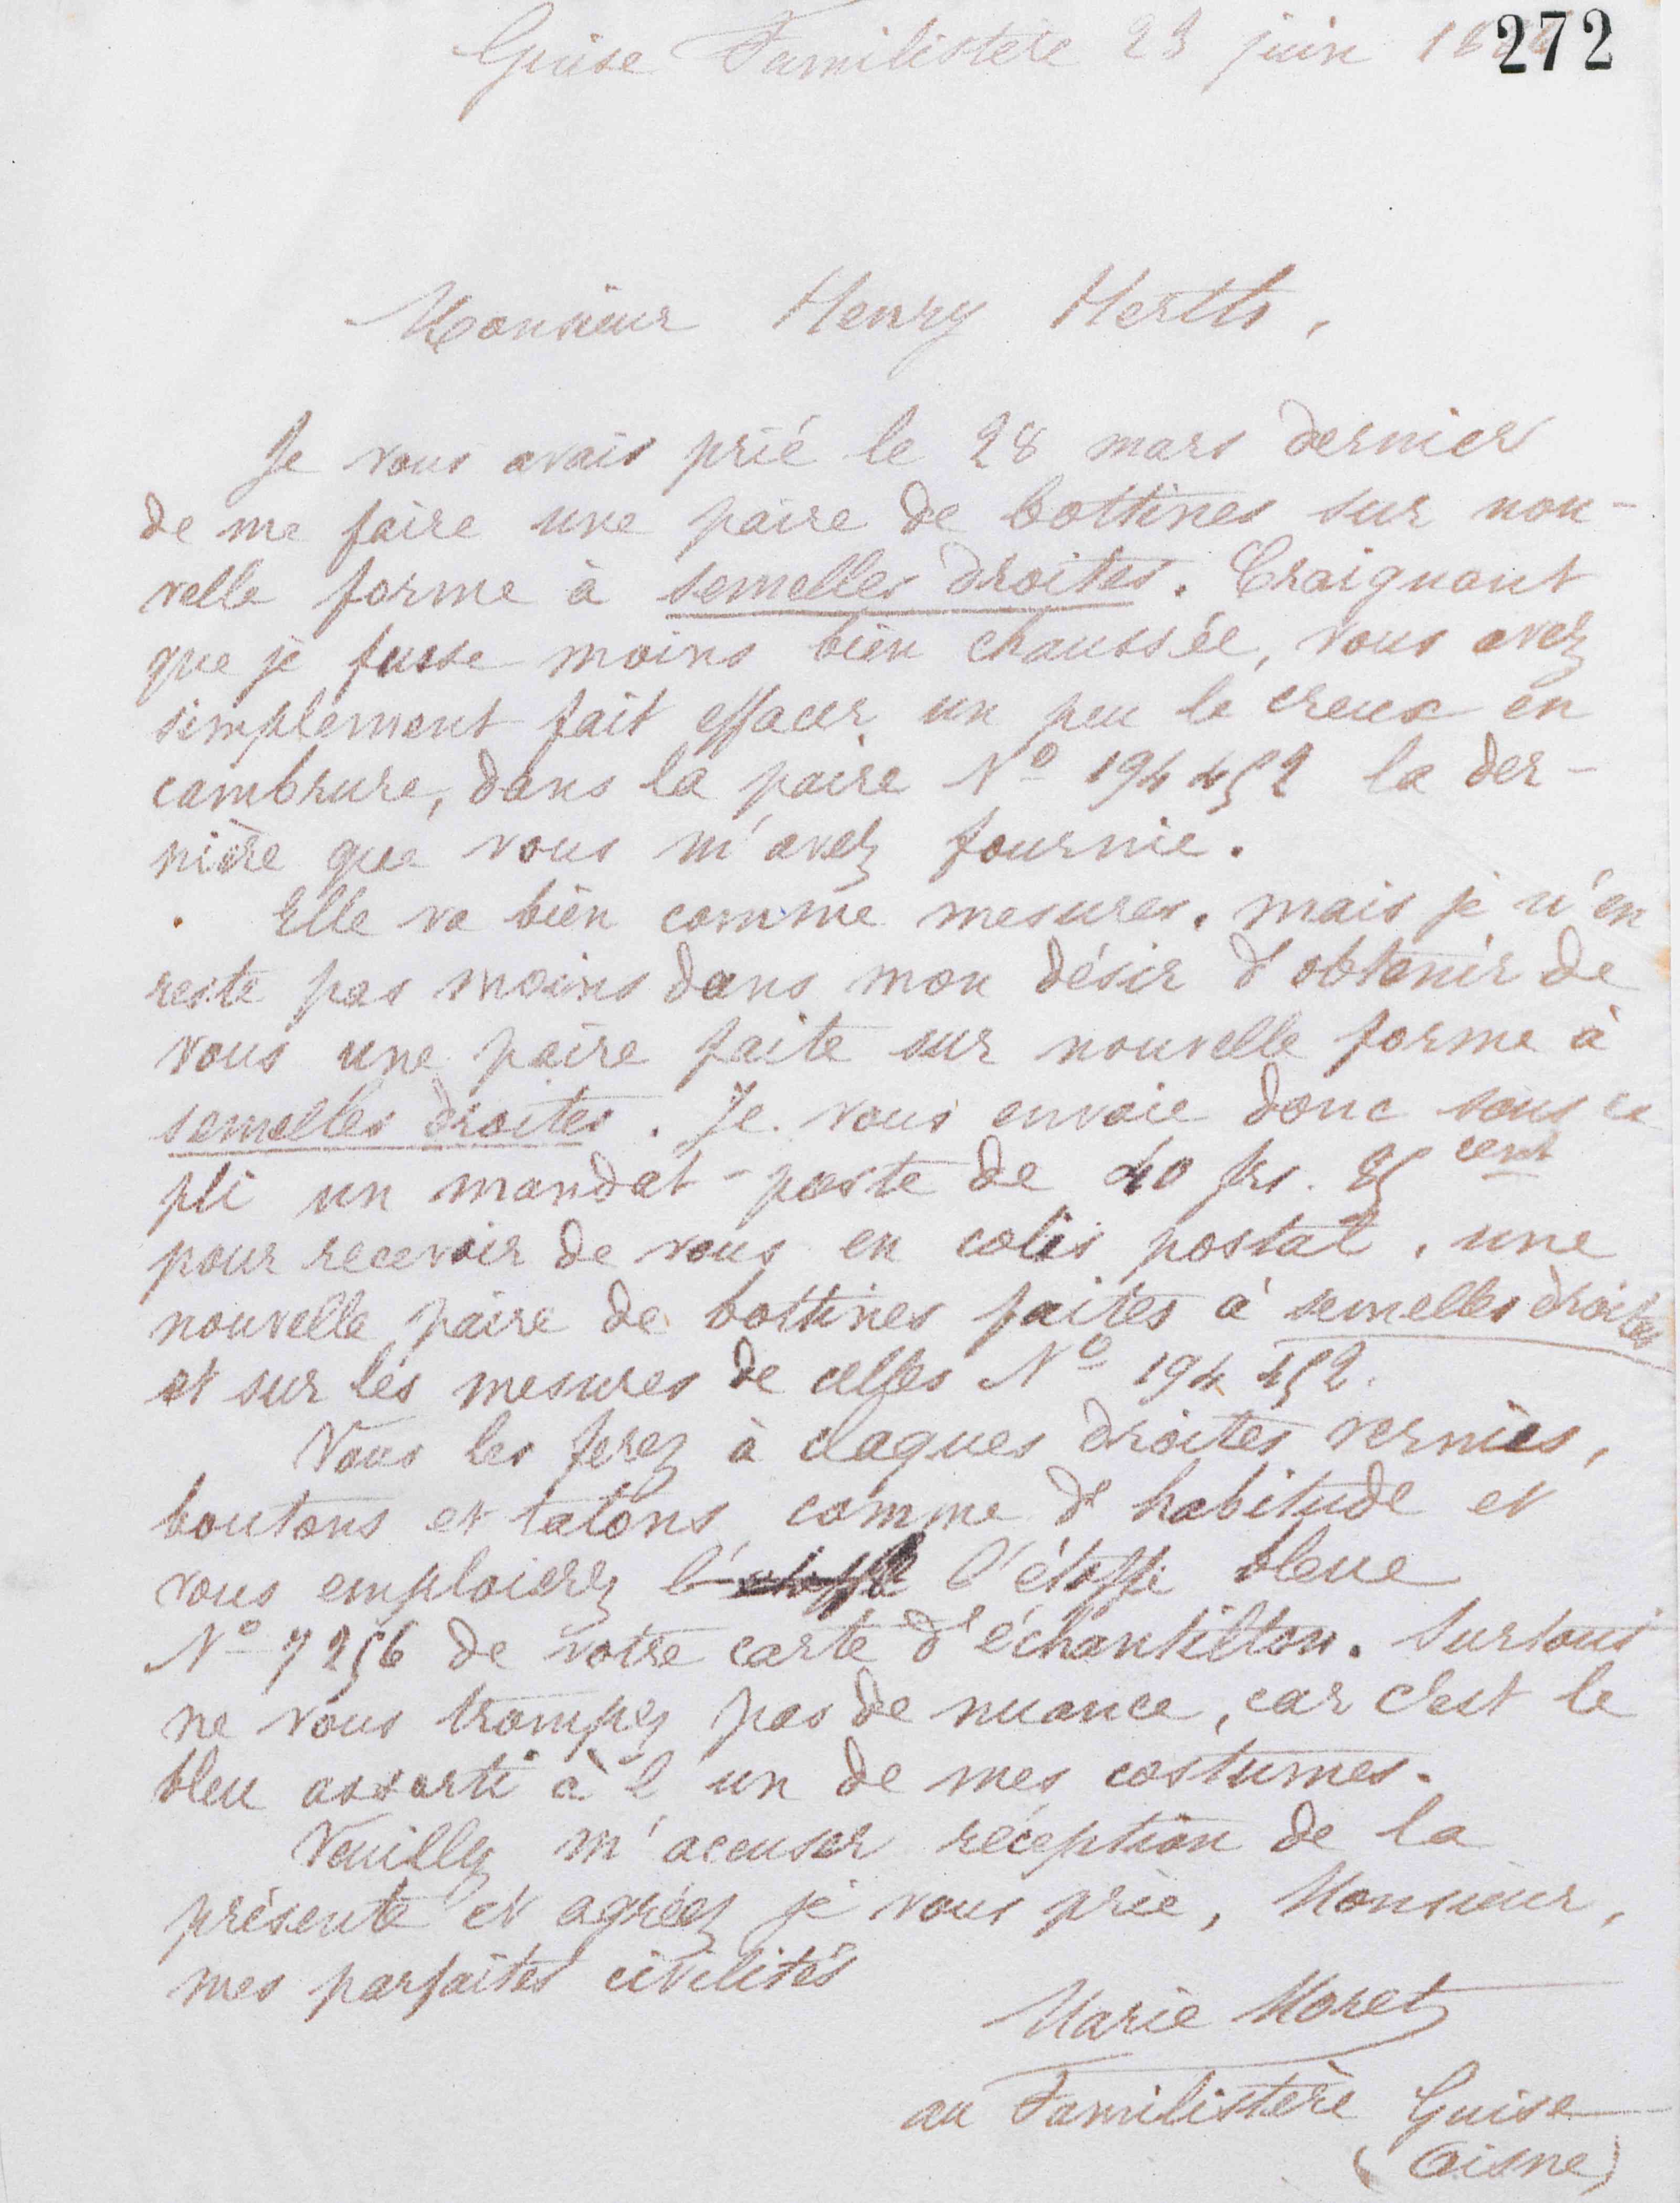 272
Guise Familistère 23 juin
Monsieur Henry Herth,
Je vous avais prié le 28 mars dernier
de me faire une paire de bottines sur nou-
velle forme à semelles droites. Craignant
que je fusse moins bien chaussée, vous avez
simplement fait effacer un peu le creux en
cambrure, dans la paire N° 194 452 la der-
nière que vous m'avez fournie.
Elle va bien comme mesures. mais je n'en
reste pas moins dans mon désir d'obtenir de
vous une paire faite sur nouvelle forme à
semelles droites. Je vous envoie donc sous ce
pli un mandat-poste de 40 frs. 85 cent
pour recevoir de vous en colis postal, une
nouvelle paire de bottines faites à semelles droites
et sur les mesures de celles N° 194 452.
Vous les ferez à claques droites vernies,
boutons et talons comme d'habitude et
vous emploierez l'étoffe l'étoffe bleue
N° 7256 de votre carte d'échantillon. Surtout
ne vous trompez pas de nuance, car c'est le
bleu assorti à l'un de mes costumes.
Veuillez m'accuser réception de la
présente et agréez je vous prie, Monsieur,
mes parfaites civilités
Marie Moret
au Familistère Guise
(Aisne)